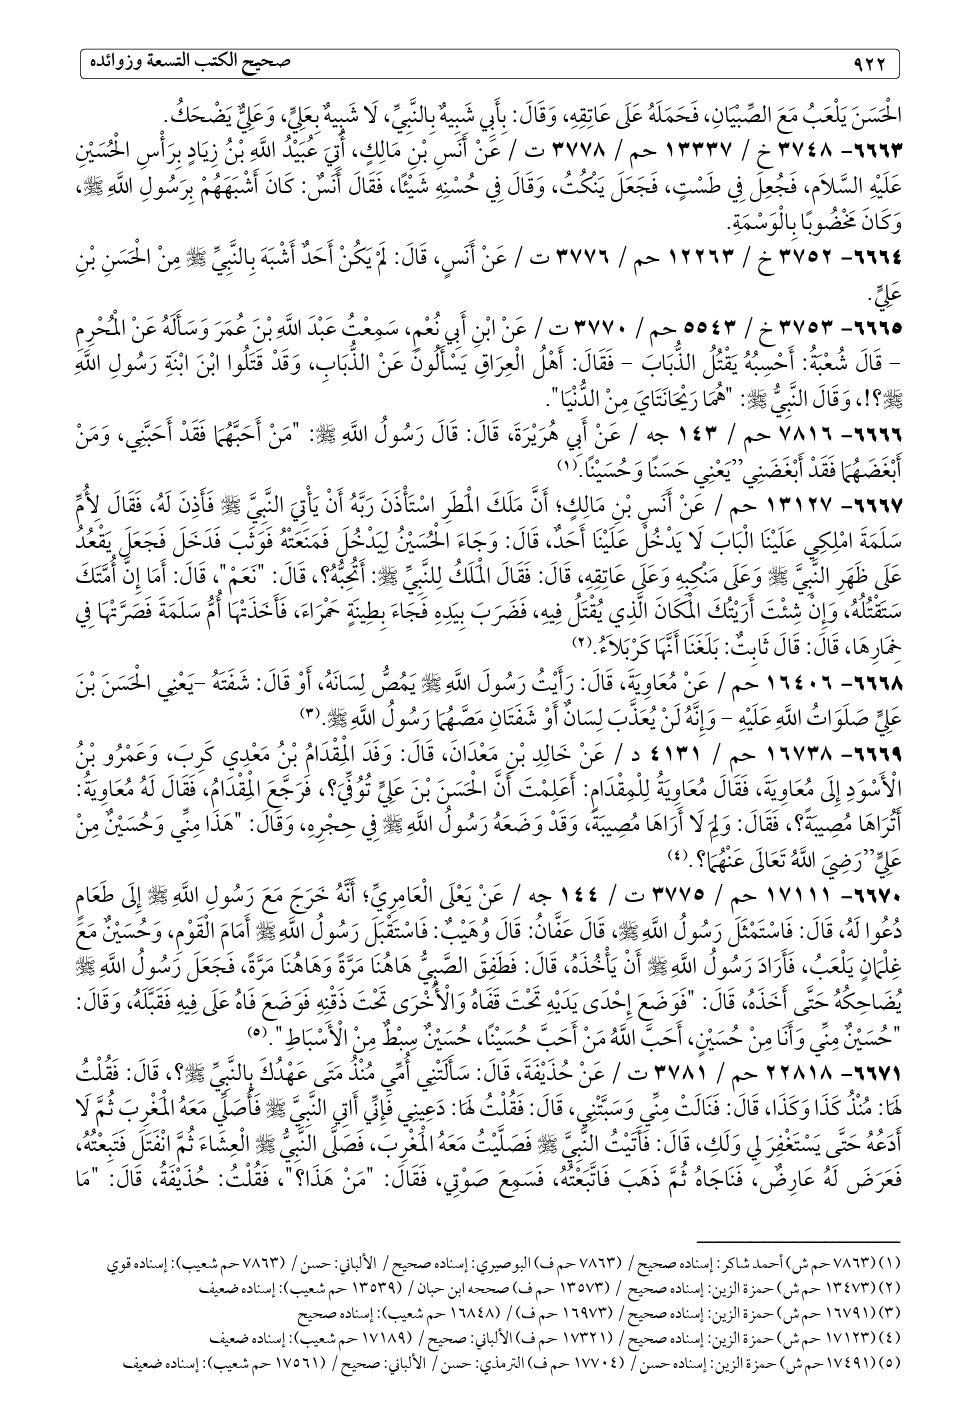 ٩٢٢ صحيح الكتب التسعة وزوائده
الْحَسَنَ يَلْعَبُ مَعَ الصِّبْيَانِ، فَحَمَلَهُ عَلَى عَاتِقِهِ، وَقَالَ: بِأَبِي شَبِيهٌ بِالنَّبِيِّ، لَا شَبِيهٌ بِعَلِيٍّ، وَعَلِيٌّ يَضْحَكُ.
٦٦٦٣- ٣٧٤٨ خ / ١٣٣٣٧ حم / ٣٧٧٨ ت / عَنْ أَنَسِ بْنِ مَالِكٍ، أُتِيَ عُبَيْدُ اللَّهِ بْنُ زِيَادٍ بِرَأْسِ الْحُسَيْنِ
عَلَيْهِ السَّلَام، فَجُعِلَ فِي طَسْتٍ، فَجَعَلَ يَنْكُتُ، وَقَالَ فِي حُسْنِهِ شَيْئًا، فَقَالَ أَنَسٌ: كَانَ أَشْبَهَهُمْ بِرَسُولِ اللَّهِ ﷺ،
وَكَانَ مَخْضُوبًا بِالْوَسْمَةِ.
٦٦٦٤- ٣٧٥٢ خ / ١٢٢٦٣ حم / ٣٧٧٦ ت / عَنْ أَنَسٍ، قَالَ: لَمْ يَكُنْ أَحَدٌ أَشْبَهَ بِالنَّبِيِّ ﷺ مِنْ الْحَسَنِ بْنِ
عَلِيٍّ.
٦٦٦٥- ٣٧٥٣ خ / ٥٥٤٣ حم / ٣٧٧٠ ت / عَنْ ابْنِ أَبِي نُعْمٍ، سَمِعْتُ عَبْدَ اللَّهِ بْنَ عُمَرَ وَسَأَلَهُ عَنْ الْمُحْرِمِ
– قَالَ شُعْبَةُ: أَحْسِبُهُ يَقْتُلُ الذُّبَابَ – فَقَالَ: أَهْلُ الْعِرَاقِ يَسْأَلُونَ عَنْ الذُّبَابِ، وَقَدْ قَتَلُوا ابْنَ ابْنَةِ رَسُولِ اللَّهِ
ﷺ؟!، وَقَالَ النَّبِيُّ ﷺ: "هُمَا رَيْحَانَتَايَ مِنْ الدُّنْيَا".
٦٦٦٦- ٧٨١٦ حم / ١٤٣ جه / عَنْ أَبِي هُرَيْرَةَ، قَالَ: قَالَ رَسُولُ اللَّهِ ﷺ: "مَنْ أَحَبَّهُمَا فَقَدْ أَحَبَّنِي، وَمَنْ
أَبْغَضَهُمَا فَقَدْ أَبْغَضَنِي" يَعْنِي حَسَنًا وَحُسَيْنًا.(١)
٦٦٦٧- ١٣١٢٧ حم / عَنْ أَنَسِ بْنِ مَالِكٍ؛ أَنَّ مَلَكَ الْمَطَرِ اسْتَأْذَنَ رَبَّهُ أَنْ يَأْتِيَ النَّبِيَّ ﷺ فَأَذِنَ لَهُ، فَقَالَ لِأُمِّ
سَلَمَةَ امْلِكِي عَلَيْنَا الْبَابَ لَا يَدْخُلْ عَلَيْنَا أَحَدٌ، قَالَ: وَجَاءَ الْحُسَيْنُ لِيَدْخُلَ فَمَنَعَتْهُ فَوَثَبَ فَدَخَلَ فَجَعَلَ يَقْعُدُ
عَلَى ظَهَرِ النَّبِيَّ ﷺ وَعَلَى مَنْكِبِهِ وَعَلَى عَاتِقِهِ، قَالَ: فَقَالَ الْمَلَكُ لِلنَّبِيِّ ﷺ: أَتُحِبُّهُ؟، قَالَ: "نَعَمْ"، قَالَ: أَمَا إِنَّ أُمَّتَكَ
سَتَقْتُلُهُ، وَإِنْ شِئْتَ أَرَيْتُكَ الْمَكَانَ الَّذِي يُقْتَلُ فِيهِ، فَضَرَبَ بِيَدِهِ فَجَاءَ بِطِينَةٍ حَمْرَاءَ، فَأَخَذَتْهَا أُمُّ سَلَمَةَ فَصَرَّتْهَا فِي
خِمَارِهَا، قَالَ: قَالَ ثَابِتٌ: بَلَغَنَا أَنَّهَا كَرْبَلَاءُ.(٢)
٦٦٦٨- ١٦٤٠٦ حم / عَنْ مُعَاوِيَةَ، قَالَ: رَأَيْتُ رَسُولَ اللَّهِ ﷺ يَمُصُّ لِسَانَهُ، أَوْ قَالَ: شَفَتَهُ –يَعْنِي الْحَسَنَ بْنَ
عَلِيٍّ صَلَوَاتُ اللَّهِ عَلَيْهِ – وَإِنَّهُ لَنْ يُعَذَّبَ لِسَانٌ أَوْ شَفَتَانِ مَصَّهُمَا رَسُولُ اللَّهِ ﷺ.(٣)
٦٦٦٩- ١٦٧٣٨ حم / ٤١٣١ د / عَنْ خَالِدِ بْنِ مَعْدَانَ، قَالَ: وَفَدَ الْمِقْدَامُ بْنُ مَعْدِي كَرِبَ، وَعَمْرُو بْنُ
الْأَسْوَدِ إِلَى مُعَاوِيَةَ، فَقَالَ مُعَاوِيَةُ لِلْمِقْدَامِ: أَعَلِمْتَ أَنَّ الْحَسَنَ بْنَ عَلِيٍّ تُوُفِّيَ؟، فَرَجَّعَ الْمِقْدَامُ، فَقَالَ لَهُ مُعَاوِيَةُ:
أَتُرَاهَا مُصِيبَةً؟، فَقَالَ: وَلِمَ لَا أَرَاهَا مُصِيبَةً، وَقَدْ وَضَعَهُ رَسُولُ اللَّهِ ﷺ فِي حِجْرِهِ، وَقَالَ: "هَذَا مِنِّي وَحُسَيْنٌ مِنْ
عَلِيٍّ" رَضِيَ اللَّهُ تَعَالَى عَنْهُمَا؟.(٤)
٦٦٧٠- ١٧١١١ حم / ٣٧٧٥ ت / ١٤٤ جه / عَنْ يَعْلَى الْعَامِرِيِّ؛ أَنَّهُ خَرَجَ مَعَ رَسُولِ اللَّهِ ﷺ إِلَى طَعَامٍ
دُعُوا لَهُ، قَالَ: فَاسْتَمْثَلَ رَسُولُ اللَّهِ ﷺ، قَالَ عَفَّانُ: قَالَ وُهَيْبٌ: فَاسْتَقْبَلَ رَسُولُ اللَّهِ ﷺ أَمَامَ الْقَوْمِ، وَحُسَيْنٌ مَعَ
غِلْمَانٍ يَلْعَبُ، فَأَرَادَ رَسُولُ اللَّهِ ﷺ أَنْ يَأْخُذَهُ، قَالَ: فَطَفِقَ الصَّبِيُّ هَاهُنَا مَرَّةً وَهَاهُنَا مَرَّةً، فَجَعَلَ رَسُولُ اللَّهِ ﷺ
يُضَاحِكُهُ حَتَّى أَخَذَهُ، قَالَ: "فَوَضَعَ إِحْدَى يَدَيْهِ تَحْتَ قَفَاهُ وَالْأُخْرَى تَحْتَ ذَقْنِهِ فَوَضَعَ فَاهُ عَلَى فِيهِ فَقَبَّلَهُ، وَقَالَ:
"حُسَيْنٌ مِنِّي وَأَنَا مِنْ حُسَيْنٍ، أَحَبَّ اللَّهُ مَنْ أَحَبَّ حُسَيْنًا، حُسَيْنٌ سِبْطٌ مِنْ الْأَسْبَاطِ".(٥)
٦٦٧١- ٢٢٨١٨ حم / ٣٧٨١ ت / عَنْ حُذَيْفَةَ، قَالَ: سَأَلَتْنِي أُمِّي مُنْذُ مَتَى عَهْدُكَ بِالنَّبِيِّ ﷺ؟، قَالَ: فَقُلْتُ
لَهَا: مُنْذُ كَذَا وَكَذَا، قَالَ: فَنَالَتْ مِنِّي وَسَبَّتْنِي، قَالَ: فَقُلْتُ لَهَا: دَعِينِي فَإِنِّي أٰاتِي النَّبِيَّ ﷺ فَأُصَلِّي مَعَهُ الْمَغْرِبَ ثُمَّ لَا
أَدَعُهُ حَتَّى يَسْتَغْفِرَ لِي وَلَكِ، قَالَ: فَأَتَيْتُ النَّبِيَّ ﷺ فَصَلَّيْتُ مَعَهُ الْمَغْرِبَ، فَصَلَّى النَّبِيُّ ﷺ الْعِشَاءَ ثُمَّ انْفَتَلَ فَتَبِعْتُهُ،
فَعَرَضَ لَهُ عَارِضٌ، فَنَاجَاهُ ثُمَّ ذَهَبَ فَاتَّبَعْتُهُ، فَسَمِعَ صَوْتِي، فَقَالَ: "مَنْ هَذَا؟"، فَقُلْتُ: حُذَيْفَةُ، قَالَ: "مَا
(١) (٧٨٦٣ حم ش) أحمد شاكر: إسناده صحيح / (٧٨٦٣ حم ف) البوصيري: إسناده صحيح / الألباني: حسن / (٧٨٦٣ حم شعيب): إسناده قوي
(٢) (١٣٤٧٣ حم ش) حمزة الزين: إسناده صحيح / (١٣٥٧٣ حم ف) صححه ابن حبان / (١٣٥٣٩ حم شعيب): إسناده ضعيف
(٣) (١٦٧٩١ حم ش) حمزة الزين: إسناده صحيح / (١٦٩٧٣ حم ف)/ (١٦٨٤٨ حم شعيب): إسناده صحيح
(٤) (١٧١٢٣ حم ش) حمزة الزين: إسناده صحيح / (١٧٣٢١ حم ف) الألباني: صحيح / (١٧١٨٩ حم شعيب): إسناده ضعيف
(٥) (١٧٤٩١ حم ش) حمزة الزين: إسناده حسن / (١٧٧٠٤ حم ف) الترمذي: حسن / الألباني: صحيح / (١٧٥٦١ حم شعيب): إسناده ضعيف